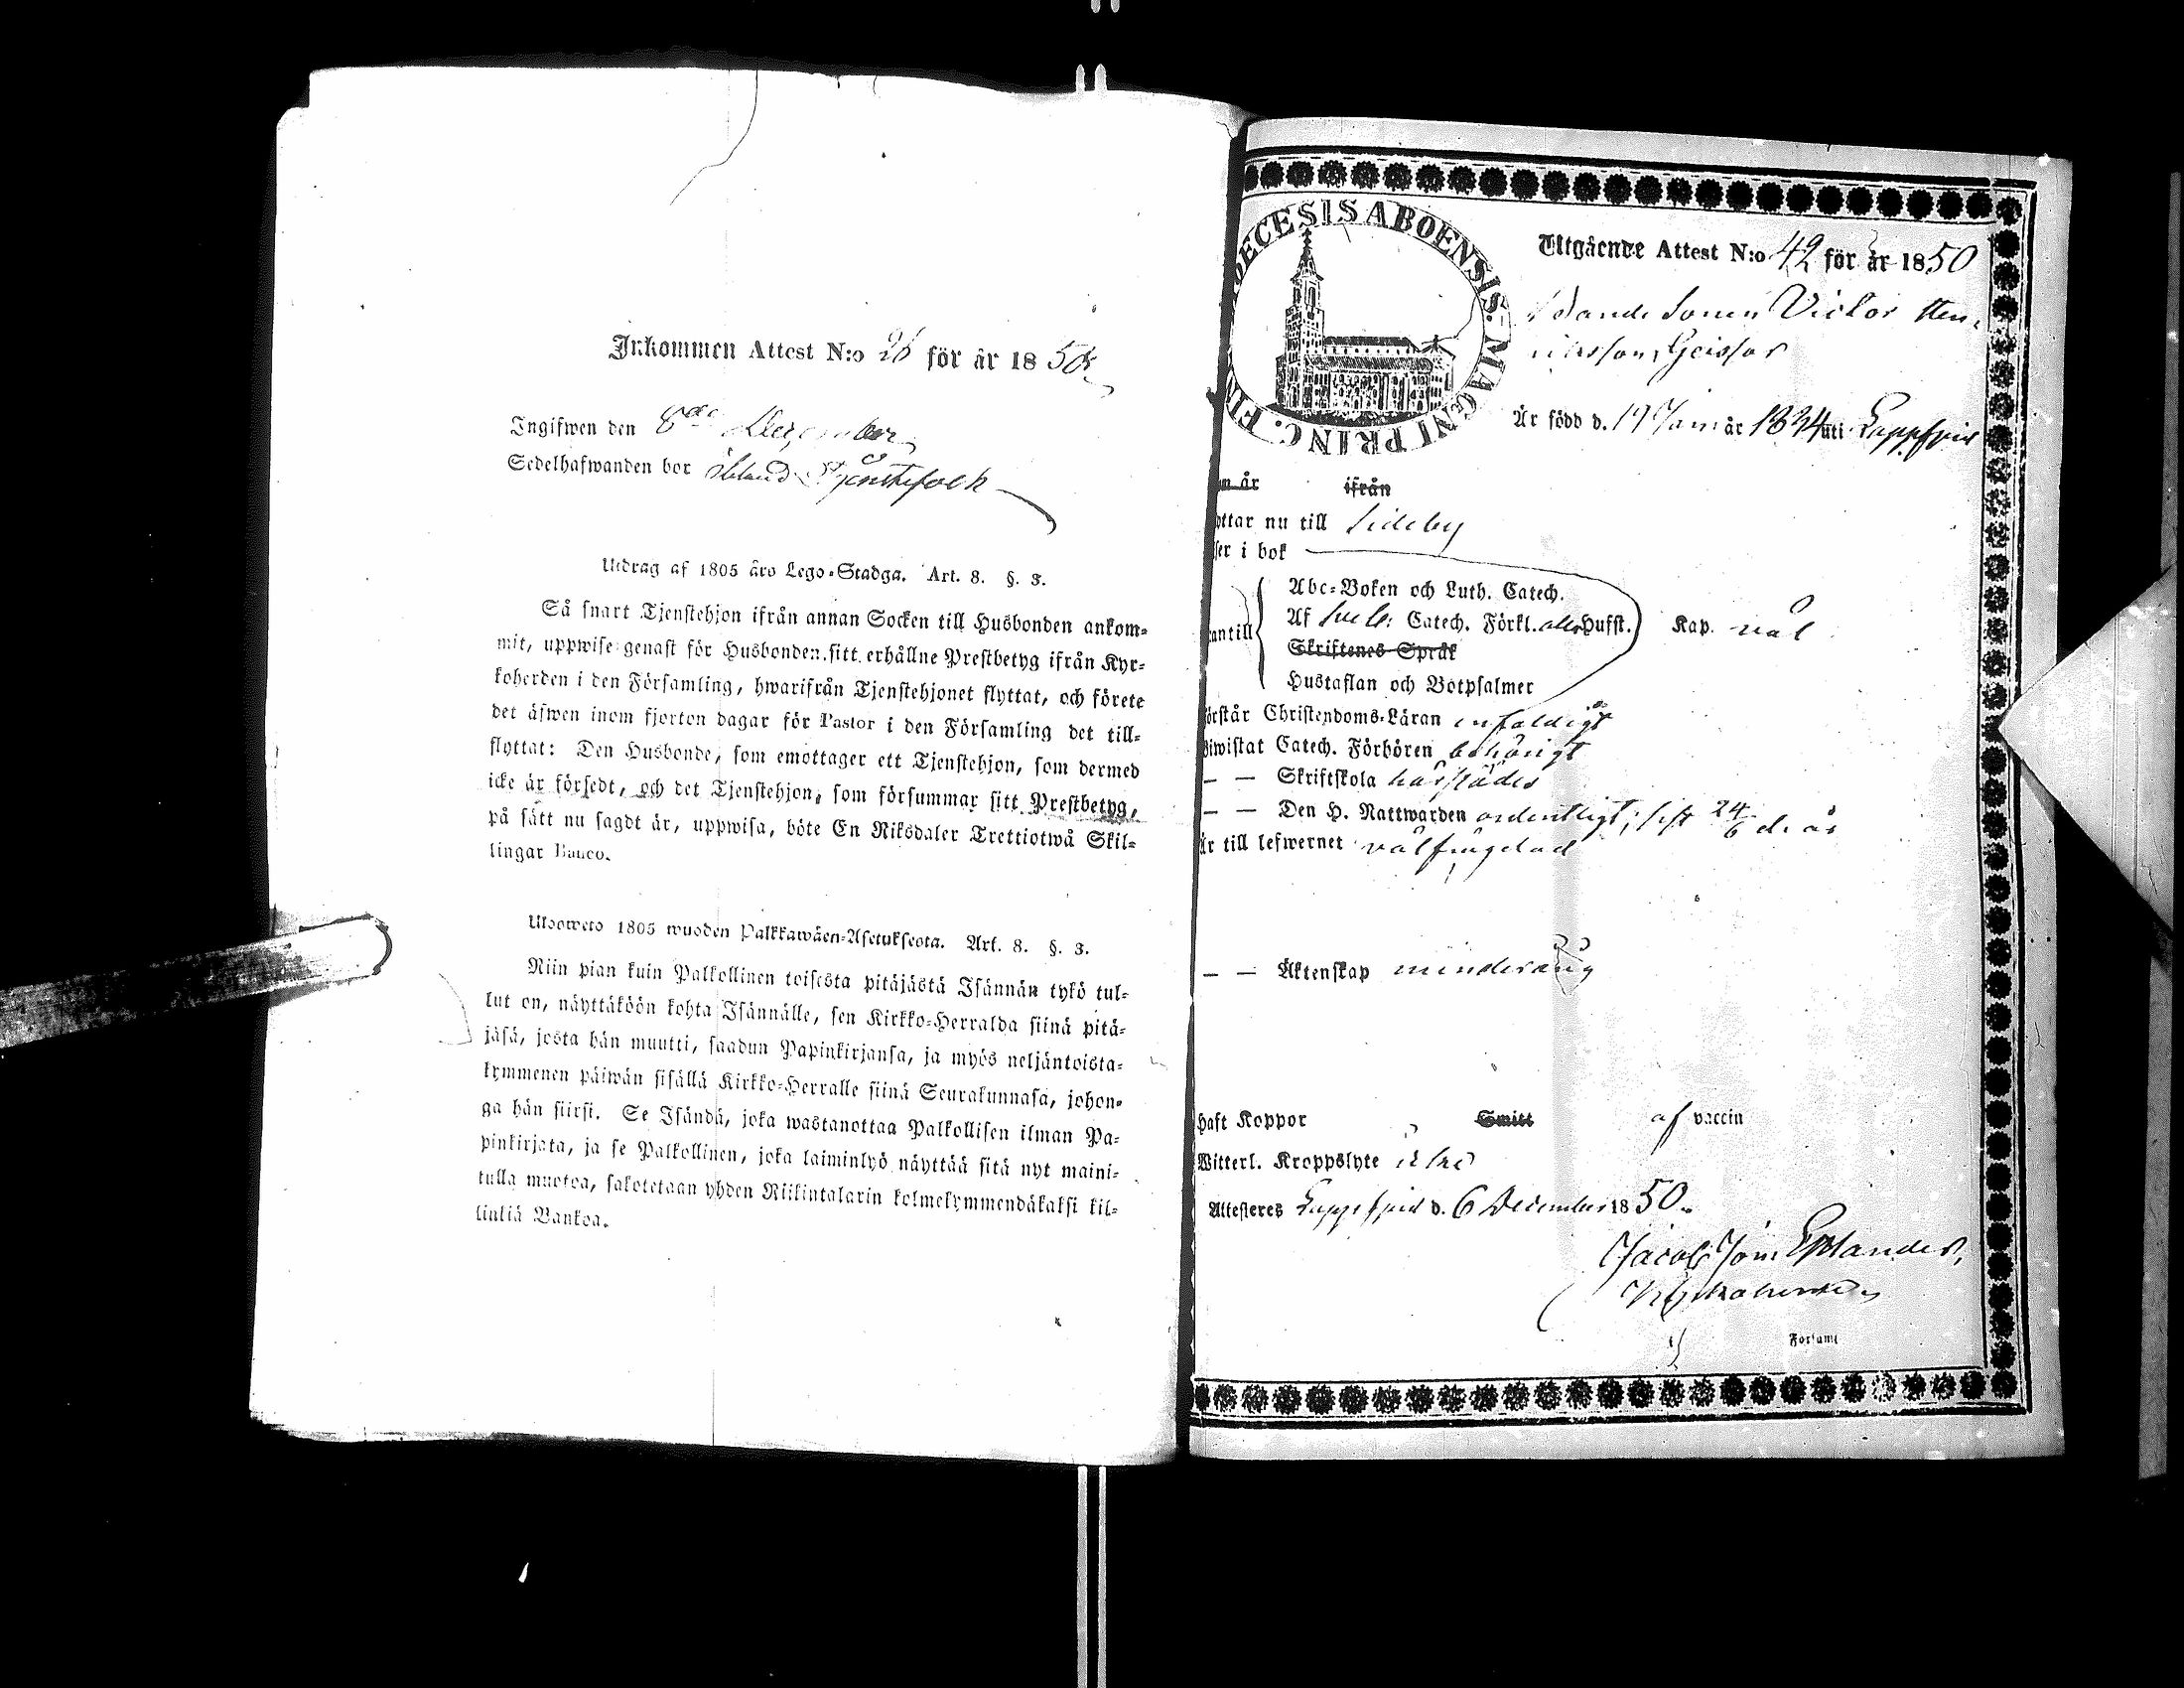 Inkommen Attest N:o 26 för år 1850
Ingifwen den 8de December
Sedelhafwanden bor ibland Tjenstefolk
Utdrag af 1805 års Lego-Stadga. Art. 8. §. 3.
Så snart Tjenstehjon ifrån annan Socken till Husbonden ankom-
mit, uppwise genast för Husbonden sitt erhållne Prestbetyg ifrån Kyr-
koherden i den Församling, hwarifrån Tjenstehjonet flyttat, och förete
det äfwen inom fjorton dagar för Pastor i den Församling det till-
flyttat: Den Husbonde, som emottager ett Tjenstehjon, som dermed
icke är försedt, och det Tjenstehjon, som försummar sitt Prestbetyg,
på sätt nu sagdt är, uppwisa, böte En Riksdaler Trettiotwå Skil-
lingar Banco.
Ulosweto 1805 wuoden Palkkawäen-Asetuksesta. Art. 8. §. 3.
Niin pian kuin Palkollinen toisesta pitäjästä Isännän tykö tul-
lut on, näyttäköön kohta Isännälle, sen Kirkko-Herralda siinä pitä-
jäsä, josta hän muutti, saadun Papinkirjansa, ja myös neljäntoista-
kymmenen päiwän sisällä Kirkko-Herralle siinä Seurakunnasa, johon-
ga hän siirsi. Se Isändä, joka wastanottaa Palkollisen ilman Pa-
pinkirjata, ja se Palkollinen, joka laiminlyö näyttää sitä nyt maini-
tulla muotoa, sakotetaan yhden Riikintalarin kolmekymmendäkaksi kil-
linkiä Bankoa.
DECESIS ABOENSIS. MAGNI PRINC. FIN
Utgående Attest N:o 42 för år 1850
Bondesonen Victor Hen-
riksson Geisfor
Är född d. 17 Jan. år 1834 uti Lappfjerd
om år ifrån
yttar nu till Sideby
ser i bok
antill
Abc-Boken och Luth. Catech.
Af Sveb. Catech. Förkl. alla Hufst. Kap. väl
Skriftenes Språk
Hustaflan och Botpsalmer
örstår Christendoms-Läran enfaldigt
Biwistat Catech. Förhören behörigt
— — Skriftskola härstädes
— — Den H. Nattwarden ordentligt; sist 24/6 d. år
Är till lefwernet välfrägdad
— — Äktenskap minderårig
Haft Koppor Smitt af vaccin
Witterl. Kroppslyte utan
Attesteres Lappfjerd d. 6 December 1850.
Jacob Joh. Estlander,
Kyrkoherde
Församl